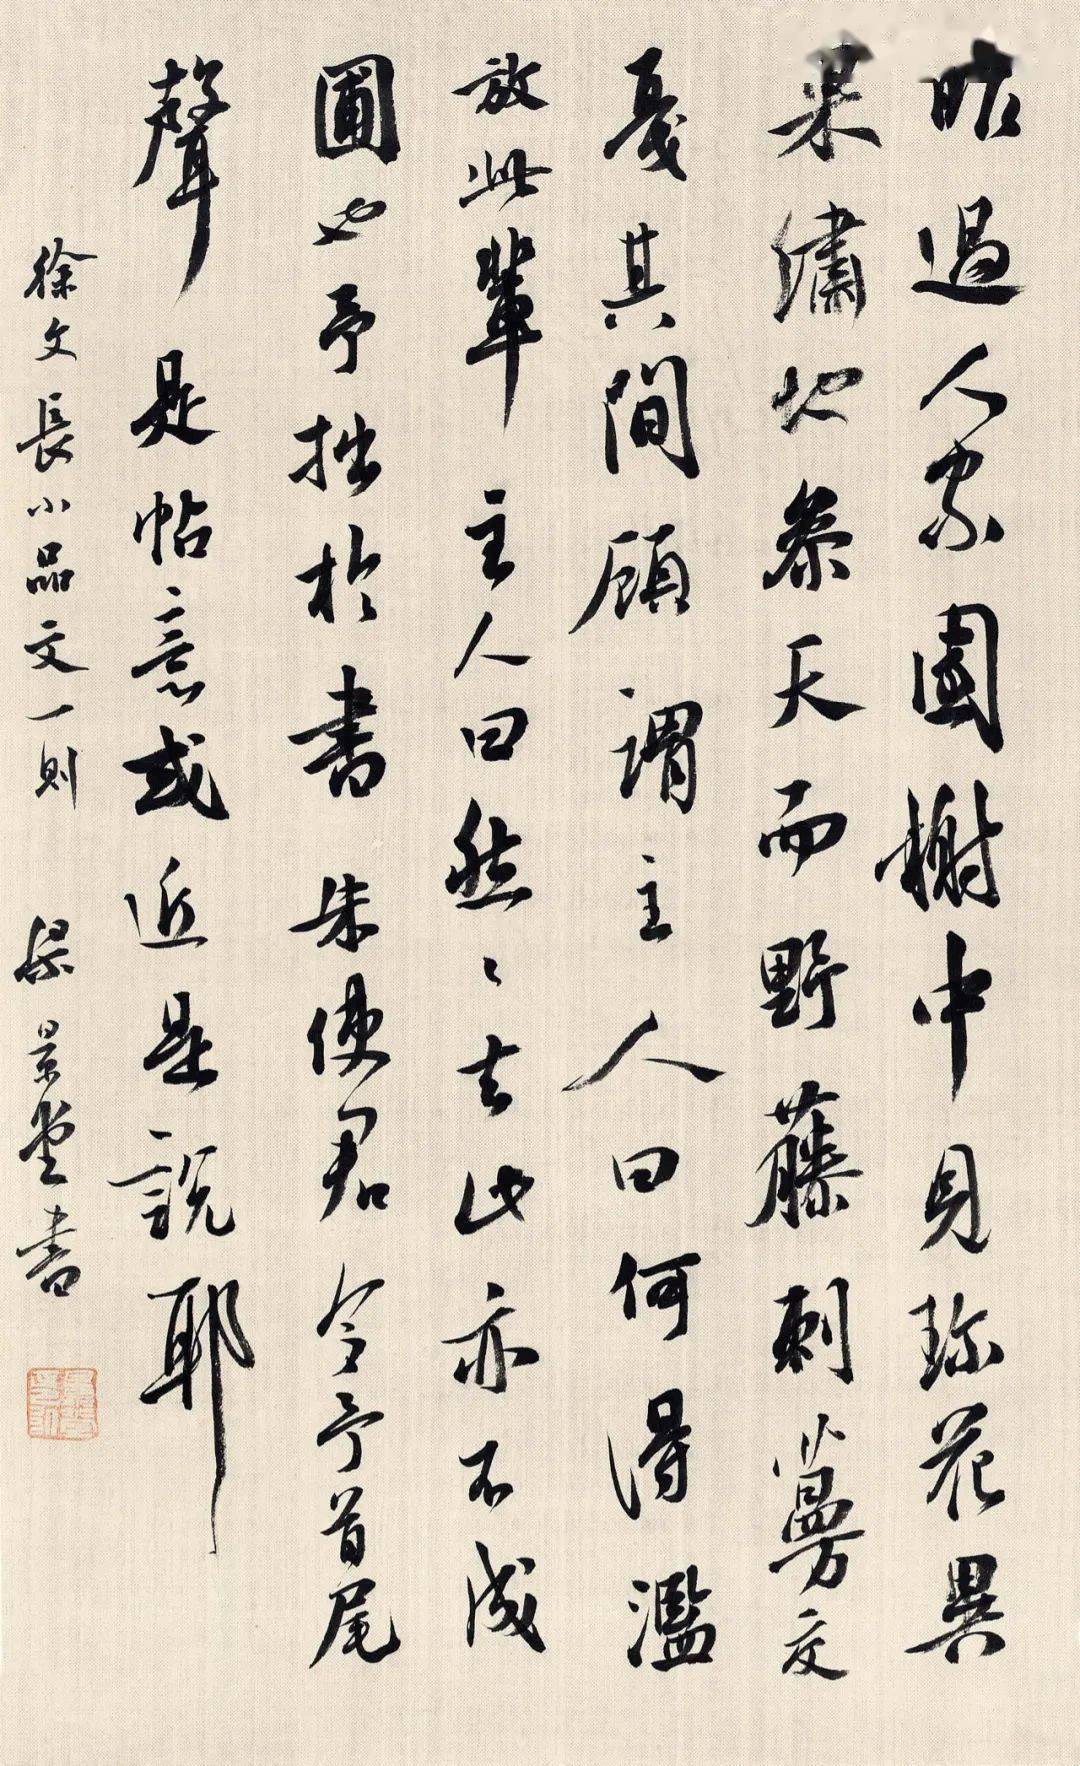 昨過人家園榭中見珍花異
果繡地參天而野藤刺蔓交
戛其間顧謂主人曰何得濫
放此輩主人曰然々去此亦不成
圃也予拙於書朱使君令予首尾
聲是帖意或近是說耶
徐文長小品文一則 梁景堂書